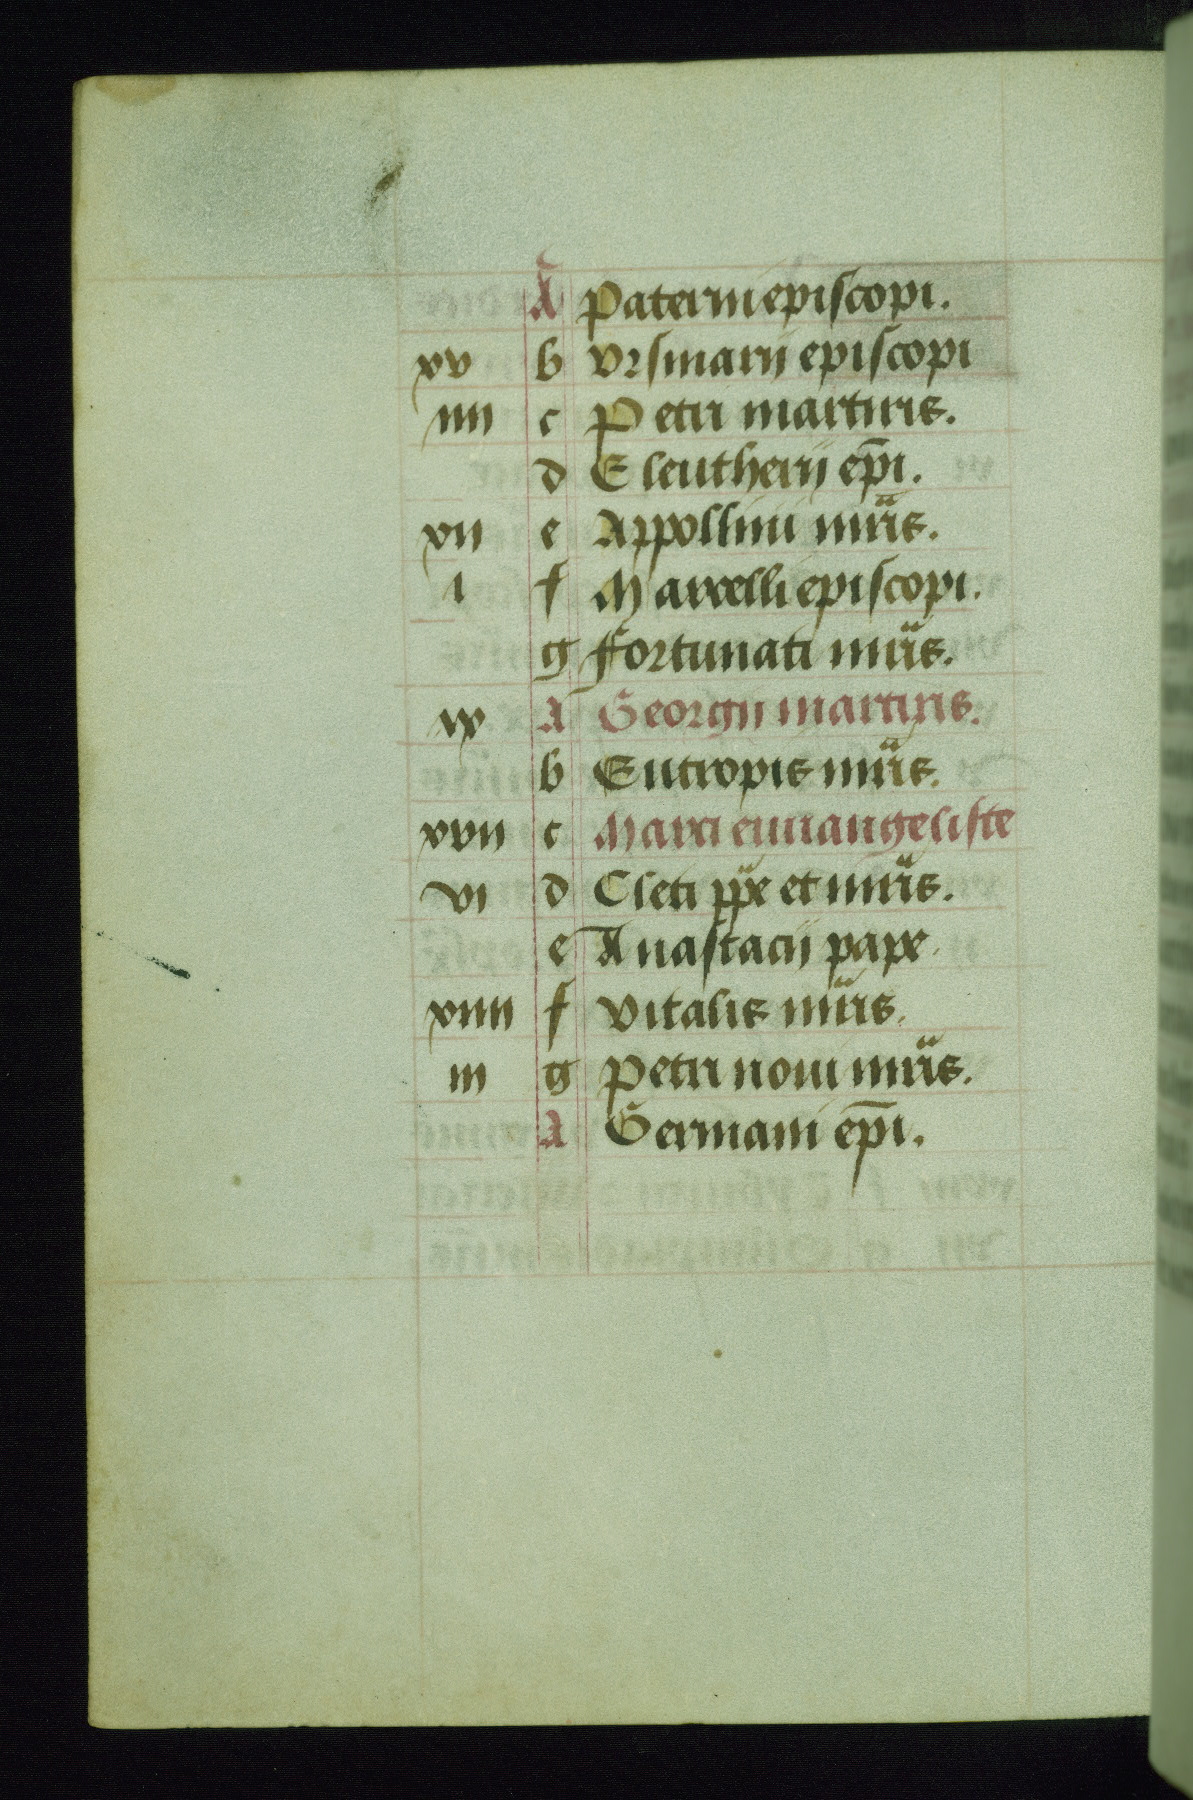 A Paterni episcopi.
xv b Vrsmarij episcopi
iiii c Petri martiris.
d Eleutherij ep̅i.
xii e Appollini mr̄is.
i f Marcelli episcopi.
g Fortunati mr̄is.
ix A Georgij martiris.
b Eutropis mr̄is.
xvii c Marci euuangeliste
vi d Cleti pp̄e et mr̄is.
e Anastacij pape.
xiiii f Vitalis mr̄is.
iii g Petri noui mr̄is.
A Germani ep̅i.